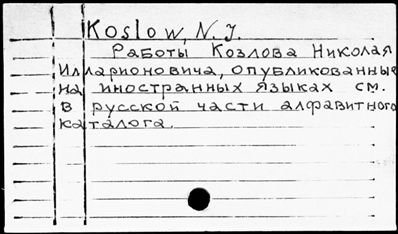 Koslow, N. J.
Работы Козлова Николая
Илларионовича, опубликованные
на иностранных языках см.
в русской части алфавитного
каталога.